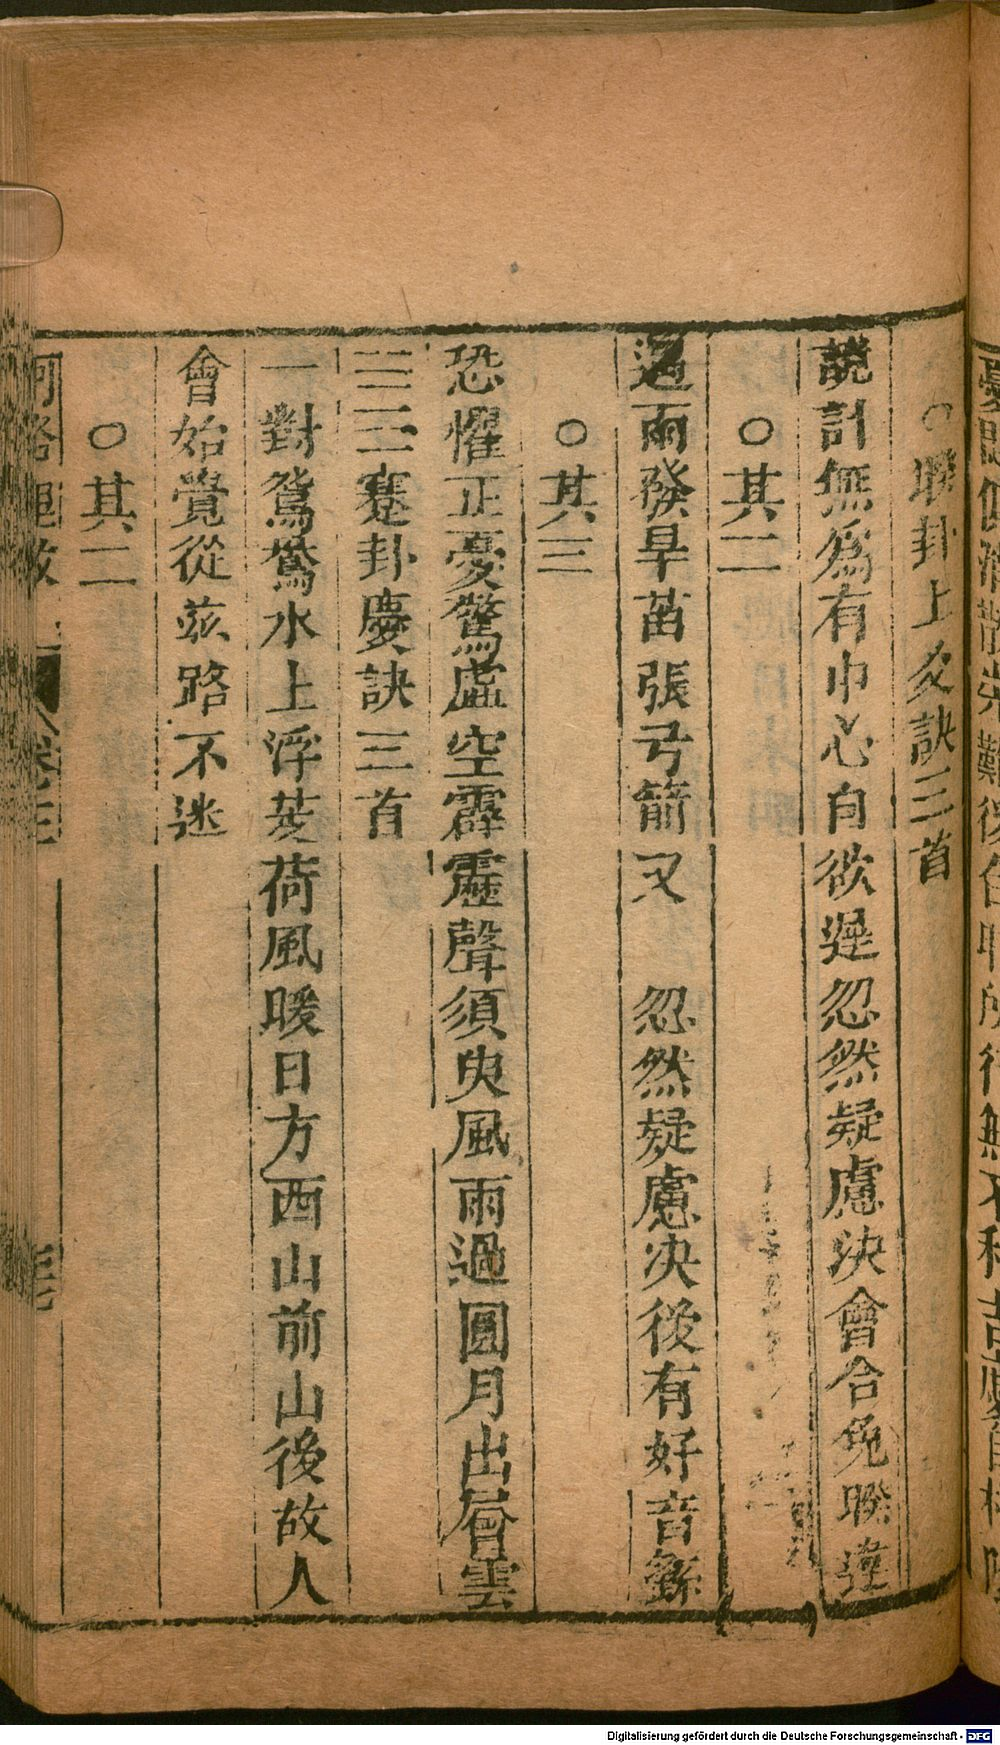 ○睽卦上爻訣三首
說計無爲有巾心自欲遲忽然疑慮決會合免睽違
○其二
過雨發旱苗張弓箭又 忽然疑慮決後有好音繇
○其三
恐懼正憂驚虛空霹靂聲須臾風雨過圓月出層雲
蹇卦慶訣三首
一對鴛鴦水上浮芰荷風暖日方西山前山後故人
會始覺從茲路不迷
○其二
河洛理數
卷七
Digitalisierung gefördert durch die Deutsche Forschungsgemeinschaft - DFG